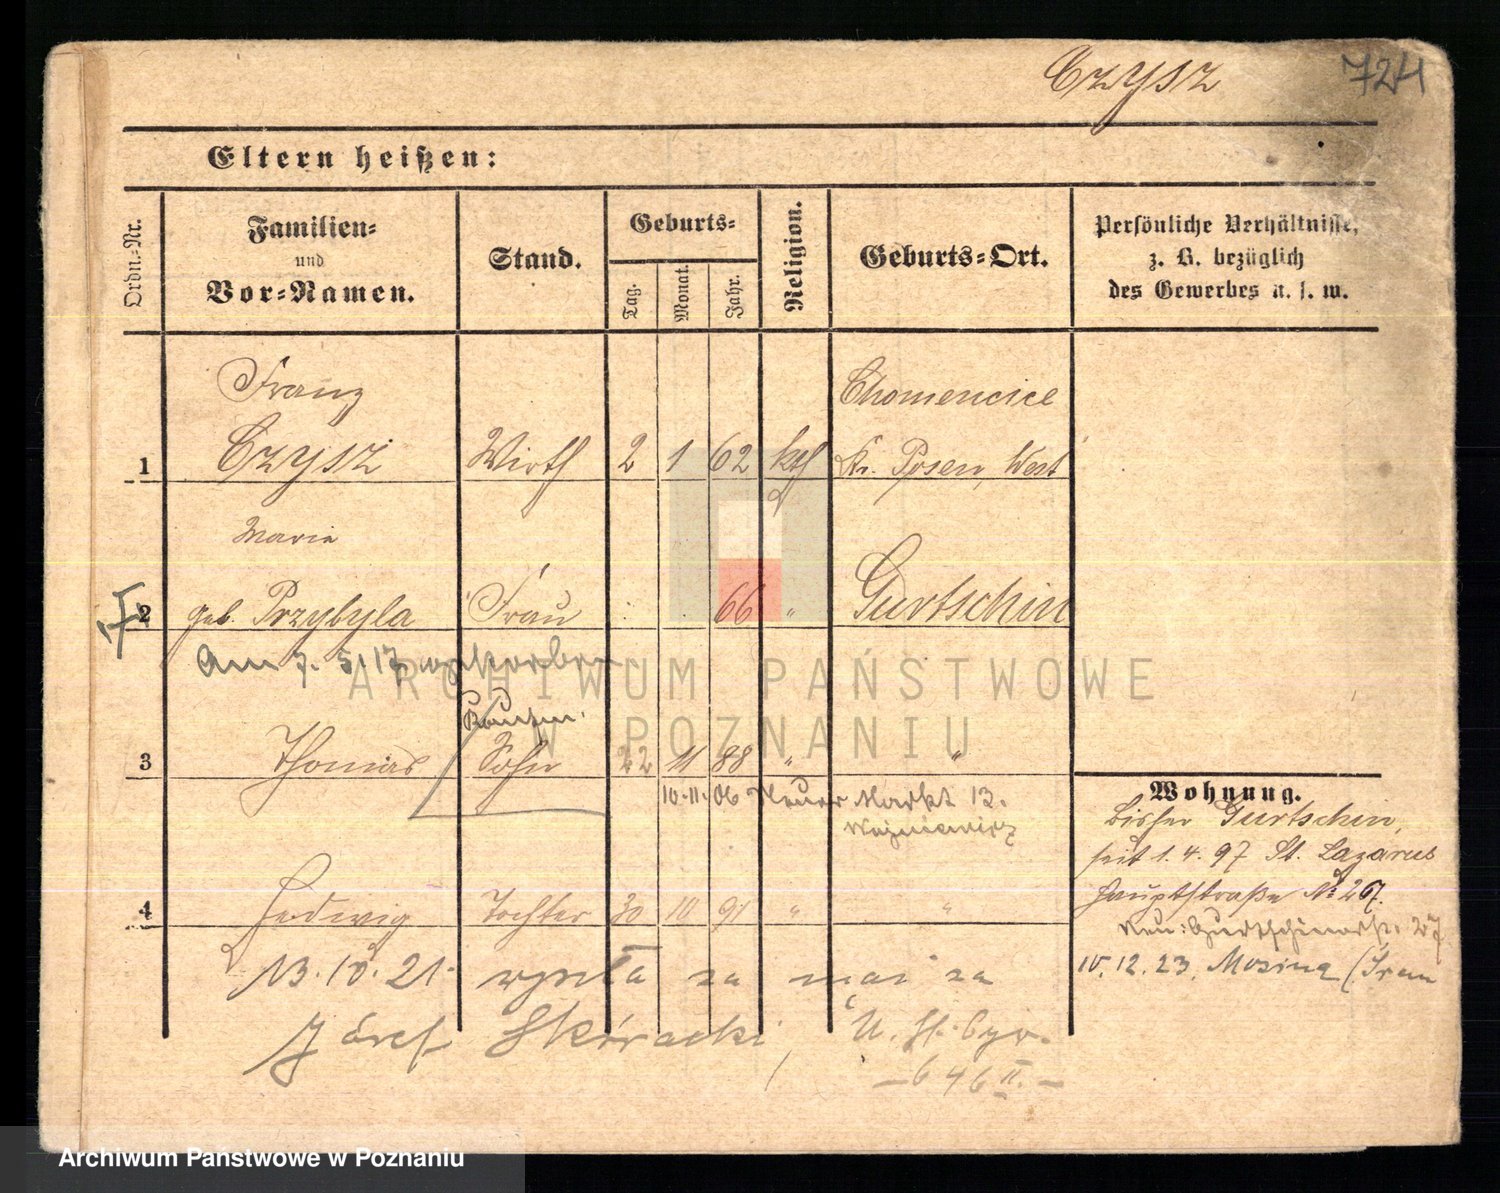 Czysz
724
Eltern heißen:
Ordn.-Nr.
Familien-
und
Vor-Namen.
Stand.
Geburts-
Tag.
Monat.
Jahr.
Religion.
Geburts-Ort.
Persönliche Verhältnisse,
z. B. bezüglich
des Gewerbes u. s. w.
Franz
Chomencice
1 Czysz Wirth 2 1 62 kth Kr. Posen, West
Marie
2 geb. Przybyla Frau 66 " Gurtschin
Am 7. 5. 17 verstorben
3 Thomas Sohn 22 11 88 " "
10.11.06 Neuer Markt 13.
Woźniewicz
4 Hedwig Tochter 30 10 91 " "
13.10.21. wyszła za mąż za
Józef Skóracki, U. St. Cyw.
— 646 II. —
Wohnung.
bisher Gurtschin,
seit 1.4.97 St. Lazarus
Hauptstraße № 267.
Neu: Gurtschinerstr. 27
10.12.23. Mosina
ARCHIWUM PAŃSTWOWE
W POZNANIU
Archiwum Państwowe w Poznaniu